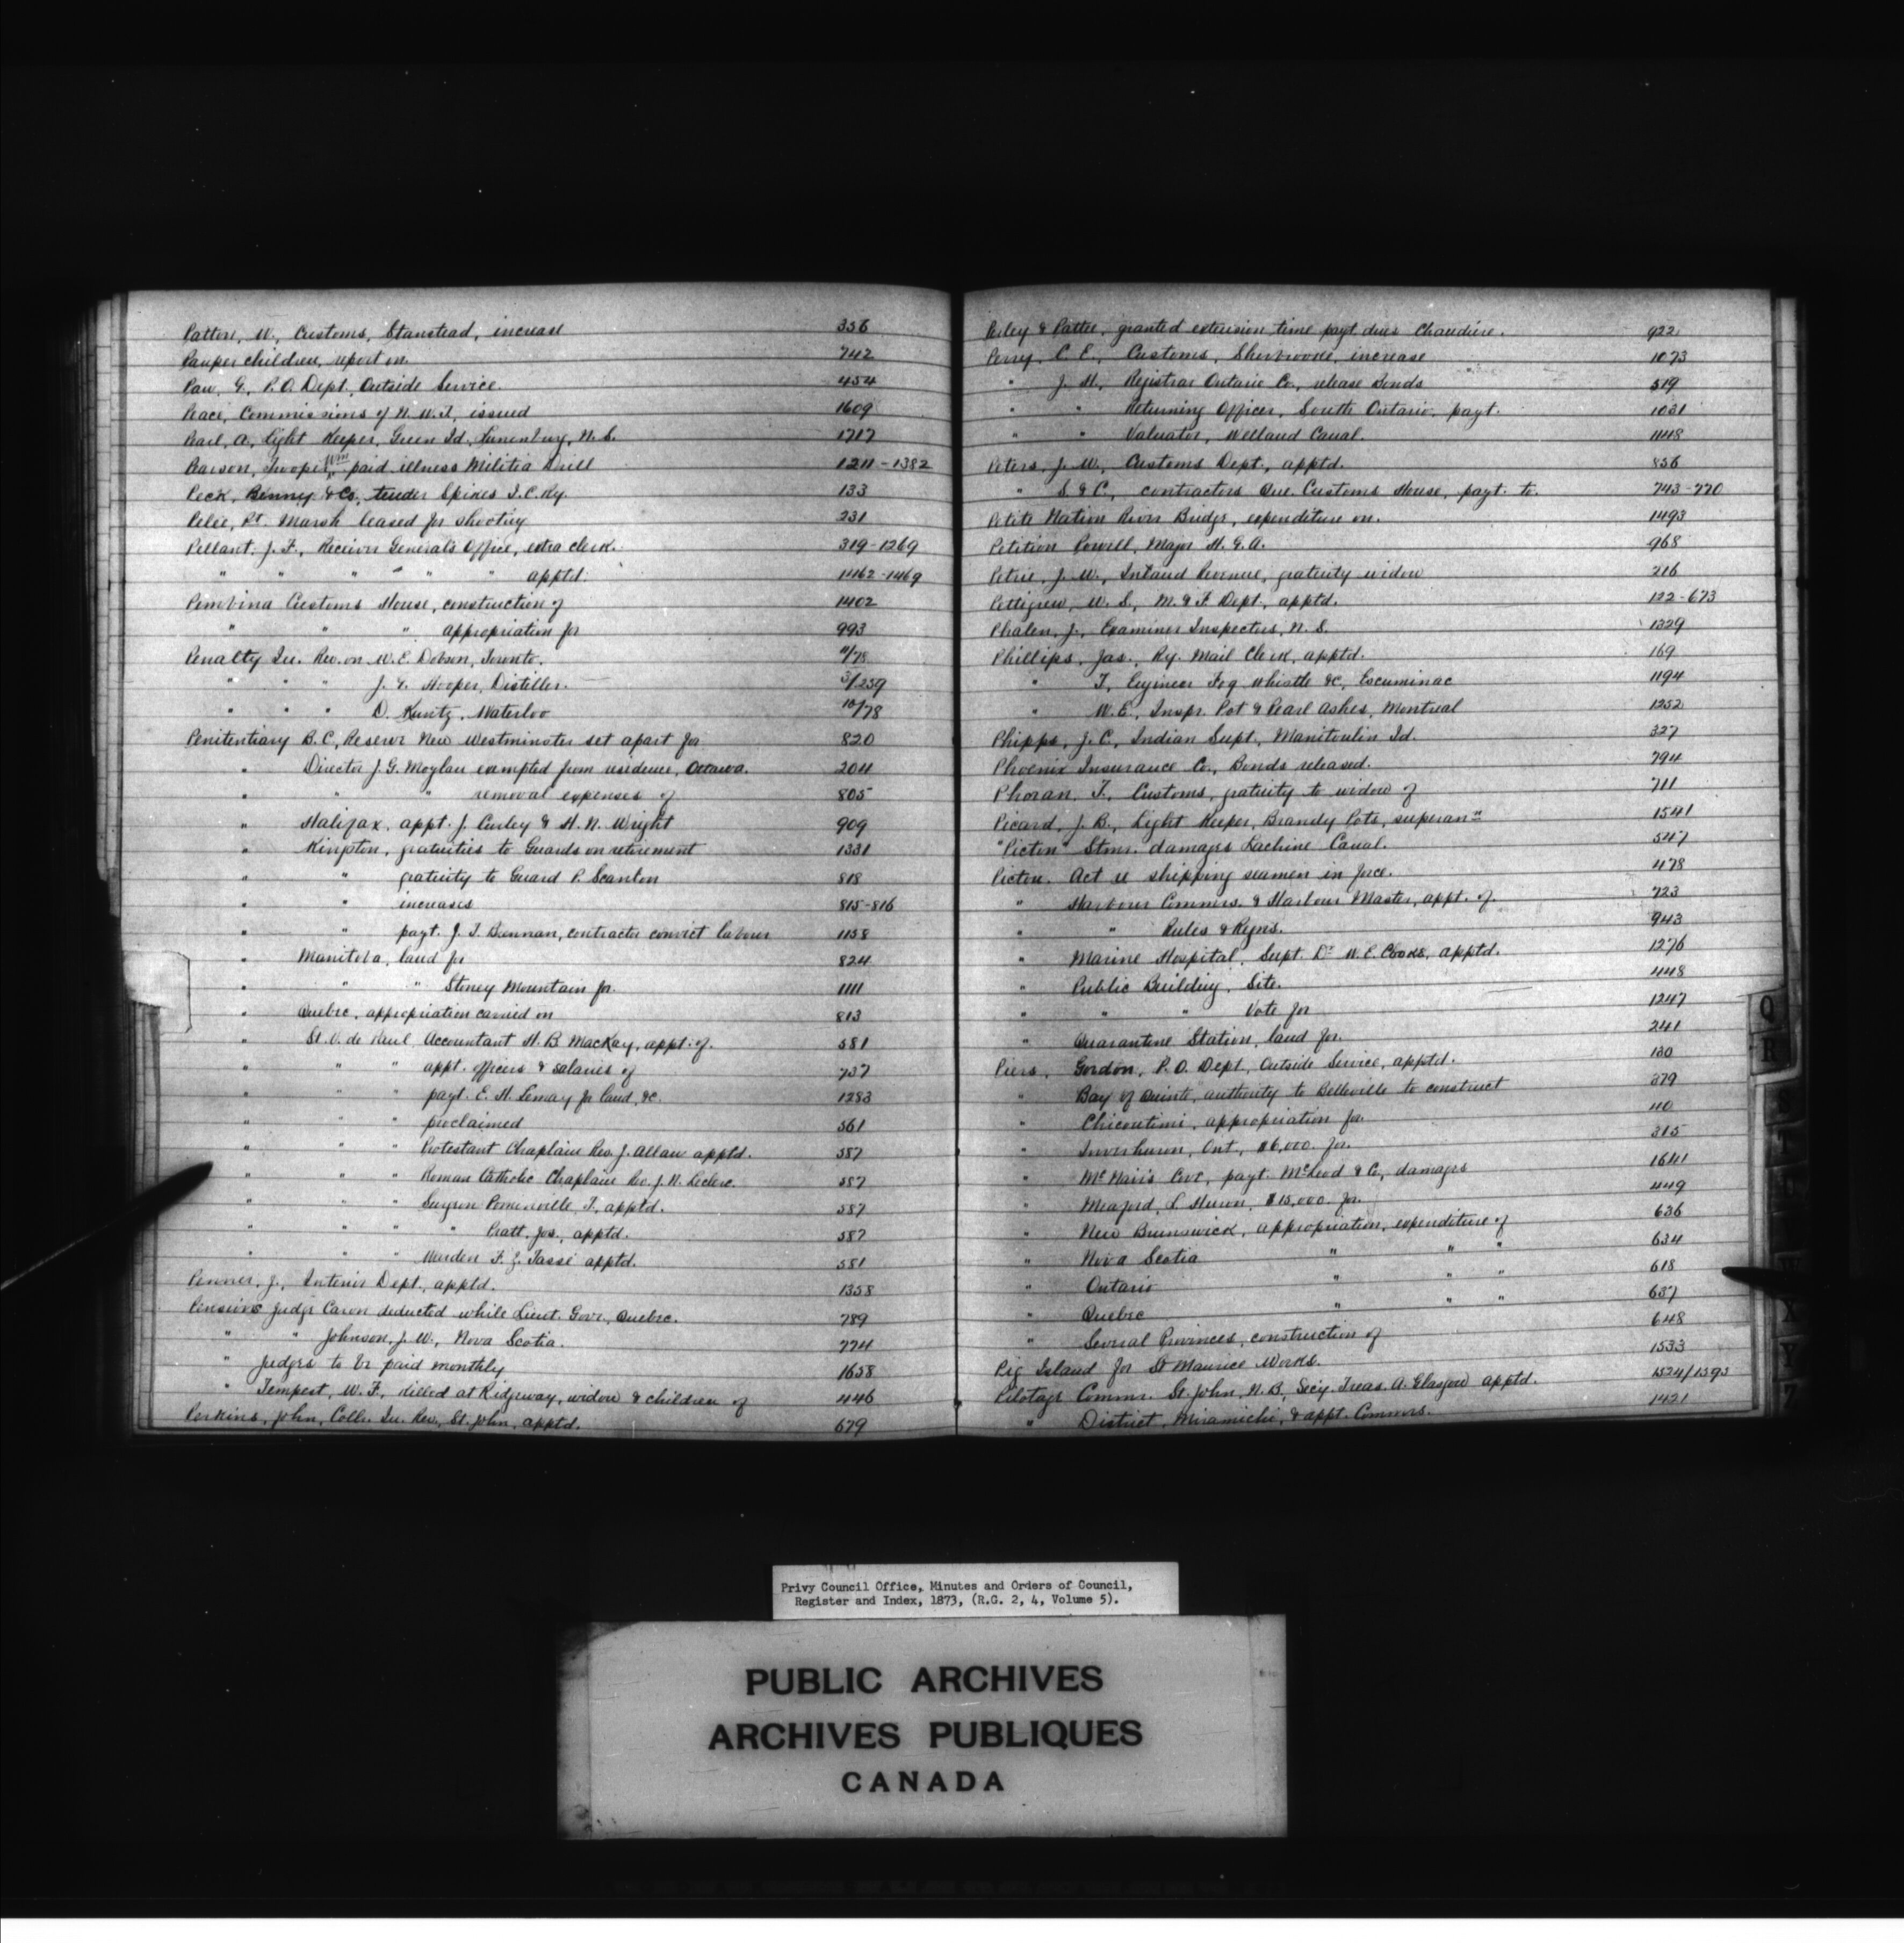 Patton, W., Customs, Stanstead, increase 356
Pauper children, report on. 742
Paw, G., P.O. Dept., Outside Service. 454
Peace, Commissions of N.W.T., issued 1609
Pearl, A., Light Keeper, Green Id., Lunenburg, N.S. 1717
Pearson, Trooper Wm, paid illness Militia Drill 1211-1382
Peck, Benny & Co., tender Spikes I.C. Ry. 133
Pelee, Pt. Marsh leased for shooting 231
Pellant, J.F., Receiver General's Office, extra clerk. 319-1269
" " " " " " apptd. 1462-1469
Pembina Customs House, construction of 1402
" " appropriation for 993
Penalty In. Rev. on W.E. Dobson, Toronto. 11/78
" " " J.G. Hooper, Distiller. 3/259
" " " D. Kuntz, Waterloo 10/78
Penitentiary B.C., Reserve New Westminster set apart for 820
" Director J.G. Moylan exempted from residence, Ottawa. 204
" " " removal expenses of 805
" Halifax, appt. J. Curley & H.N. Wright 909
" Kingston, gratuities to Guards on retirement 1331
" " gratuity to Guard P. Scanlon 818
" " increases 815-816
" " payt. J.T. Brennan, contractor convict labour 1158
" Manitoba, land for 824
" " " Stoney Mountain for. 1111
" Quebec, appropriation carried on 813
" St. V. de Paul Accountant H.B. Mackay, appt. of. 581
" " " appt. officers & salaries of 737
" " " payt. E.H. Lemay for land, &c. 1283
" " " proclaimed 561
" " " Protestant Chaplain Rev. J. Allan apptd. 587
" " " Roman Catholic Chaplain Rev. J.N. Leclerc. 587
" " " Surgeon Pominville, F., apptd. 587
" " " " Pratt, Jos., apptd. 587
" " " Warden F.Z. Tassé apptd. 581
Penner, J., Interior Dept., apptd. 1358
Pensions Judge Caron deducted while Lieut. Govr., Quebec. 789
" " Johnson, J.W., Nova Scotia. 774
" Judges to be paid monthly 1658
" Tempest, W.F., killed at Ridgeway, widow & children of 446
Perkins, John, Collr. In. Rev., St. John, apptd. 679
Perley & Pattee, granted extension time payt. dues Chaudiere. 922
Perry, C.E., Customs, Sherbrooke, increase 1073
" J.H., Registrar Ontario Co., release Bonds 519
" " Returning Officer, South Ontario, payt. 1031
" " Valuator, Welland Canal. 1148
Peters, J.W., Customs Dept., apptd. 856
" S. & C., contractors Que. Customs House, payt. to. 743-770
Petite Nation River Bridge, expenditure on. 1493
Petition Powell, Major H.G.A. 968
Petrie, J.W., Inland Revenue, gratuity widow 216
Pettigrew, W.S., M. & F. Dept., apptd. 122-673
Phalen, J., Examiner Inspectors, N.S. 1329
Phillips, Jas., Ry. Mail Clerk, apptd. 169
" T., Engineer Fog Whistle &c., Escuminac 1194
" W.E., Inspr. Pot & Pearl Ashes, Montreal 1252
Phipps, J.C., Indian Supt., Manitoulin Id. 327
Phoenix Insurance Co., Bonds released. 794
Phoran, T., Customs, gratuity to widow of 711
Picard, J.B., Light Keeper, Brandy Pots, superann 1541
"Picton" Stmr. damages Lachine Canal. 547
Pictou. Act re shipping seamen in force. 478
" Harbour Commrs. & Harbour Master, appt. of. 723
" " Rules & Regns. 943
" Marine Hospital, Supt. Dr. W.E. Cooke, apptd. 1276
" Public Building, Site. 448
" " " Vote for 1247
" Quarantine Station, land for. 241
Piers, Gordon, P.O. Dept., Outside Service, apptd. 130
" Bay of Quinte, authority to Belleville to construct 379
" Chicoutimi, appropriation for. 40
" Inverhuron, Ont., $6,000. for. 315
" McNair's Cove, payt. McLeod & Co., damages 1641
" Meaford, L. Huron, $15,000. for. 449
" New Brunswick, appropriation, expenditure of 636
" Nova Scotia " " " 634
" Ontario " " " 618
" Quebec " " " 637
" Several Provinces, construction of 648
Pig Island for St Maurice Works. 1533
Pilotage Commr. St. John, N.B., Secy. Treas. A. Glasgow apptd. 1534/1593
" District, Miramichi, & appt. Commrs. 1421
Q
R
T
X
Y
Z
Privy Council Office, Minutes and Orders of Council,
Register and Index, 1873, (R.G. 2, 4, Volume 5).
PUBLIC ARCHIVES
ARCHIVES PUBLIQUES
CANADA